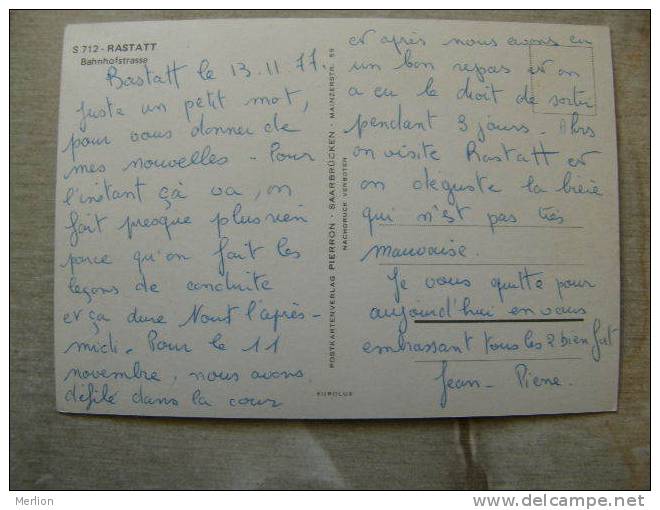 S 712 - RASTATT
Bahnhofstrasse
Rastatt le 13.11.77.
Juste un petit mot,
pour vous donner de
mes nouvelles - Pour
l'instant çà va, on
fait presque plus rien
parce qu'on fait les
leçons de conduite
et ça dure tout l'après-
midi. Pour le 11
novembre, nous avons
défilé dans la cour
POSTKARTENVERLAG PIERRON - SAARBRÜCKEN - MAINZERSTR. 55
NACHDRUCK VERBOTEN
EUROLUX
et après nous avons eu
un bon repas et on
a eu le droit de sortir
pendant 3 jours. Alors
on visite Rastatt et
on déguste la bière
qui n'est pas très
mauvaise.
Je vous quitte pour
aujourd'hui en vous
embrassant tous les 2 bien fort
Jean-Pierre.
Merlion
www.delcampe.net